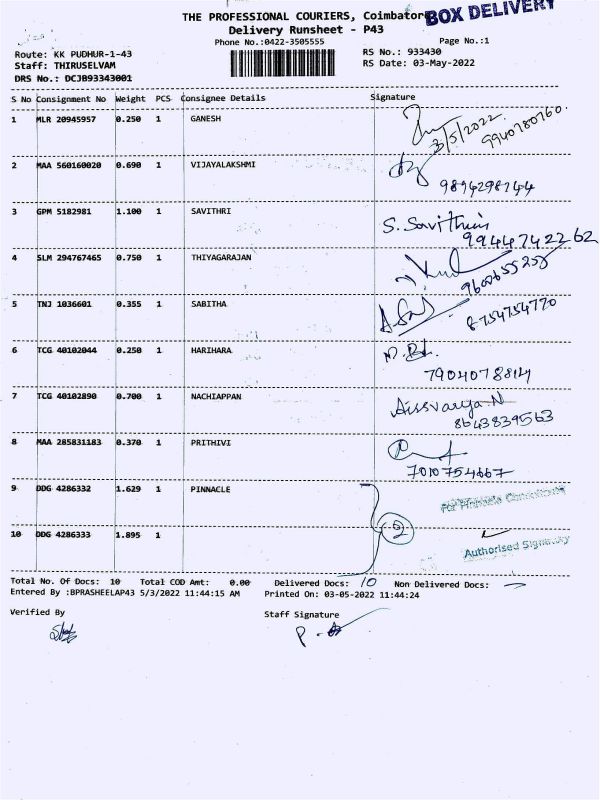 THE PROFESSIONAL COURIERS, Coimbator
BOX DELIVERY
Delivery Runsheet - P43
Phone No.:0422-3505555
Page No.:1
Route: KK PUDHUR-1-43
RS No.: 933430
Staff: THIRUSELVAM
RS Date: 03-May-2022
DRS No.: DCJB93343001
S No Consignment No Weight PCS Consignee Details Signature
1 MLR 20945957 0.250 1 GANESH
3/5/2022
9940780760.
2 MAA 560160020 0.690 1 VIJAYALAKSHMI
9894298744
3 GPM 5182981 1.100 1 SAVITHRI
S. Savithri
9944742262
4 SLM 294767465 0.750 1 THIYAGARAJAN
9600655258
5 TNJ 1036601 0.355 1 SABITHA
8754754770
6 TCG 40102044 0.250 1 HARIHARA
7904078814
7 TCG 40102890 0.700 1 NACHIAPPAN
Aissvarya.N
8643839563
8 MAA 285831183 0.370 1 PRITHIVI
7010754667
9 DDG 4286332 1.629 1 PINNACLE
For Pinnacle Consultants
2
10 DDG 4286333 1.895 1
Authorised Signatory
Total No. Of Docs: 10 Total COD Amt: 0.00 Delivered Docs: 10 Non Delivered Docs: -
Entered By :BPRASHEELAP43 5/3/2022 11:44:15 AM Printed On: 03-05-2022 11:44:24
Verified By
Staff Signature